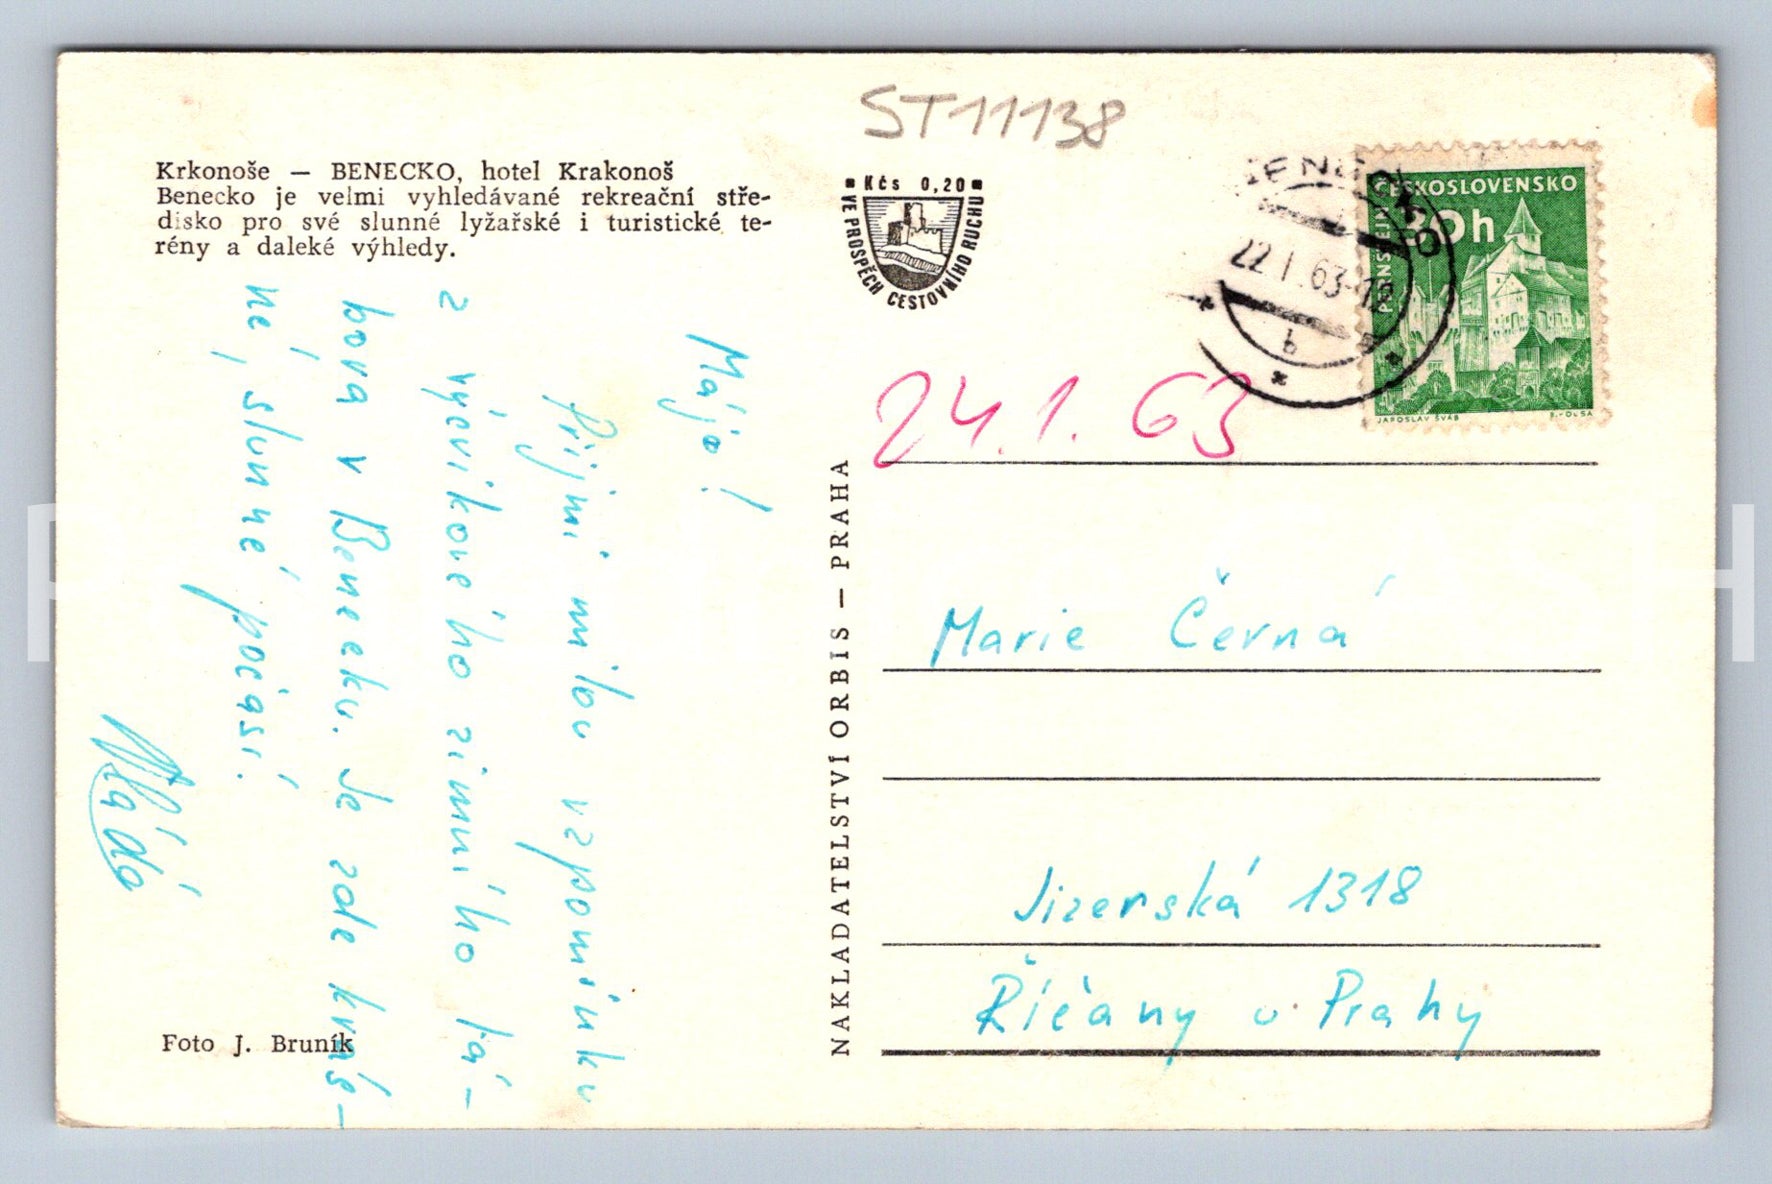 ST11138
Krkonoše — BENECKO, hotel Krakonoš
Benecko je velmi vyhledávané rekreační stře-
disko pro své slunné lyžařské i turistické te-
rény a daleké výhledy.
Kčs 0,20
VE PROSPĚCH CESTOVNÍHO RUCHU
BENECKO
22.1.63-12
b
ČESKOSLOVENSKO
20h
PERNŠTEJN
JAROSLAV ŠVÁB
24.1.63
Májo!
Přijmi milou vzpomínku
z výcvikového zimního tá-
bora v Benecku. Je zde krás-
né, slunné počasí.
Vláďa
Foto J. Bruník
NAKLADATELSTVÍ ORBIS — PRAHA
Marie Černá
Jizerská 1318
Říčany u Prahy